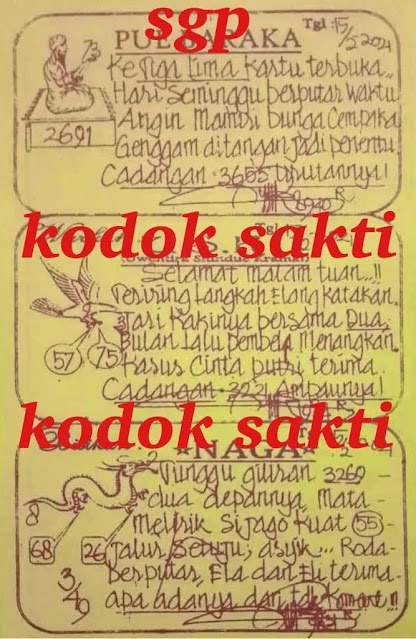 sgp
PUE SARAKA
Tgl : 15/2 2024
73
2691
Ketiga Lima Kartu terbuka..
Hari Seminggu berputar waktu
Angin Mamiri bunga Cempaka
Genggam ditangan jadi penentu.
Cadangan : 3655 Diputannya!
kodok sakti
(Owendra Shindue Kramat)
Selamat malam tuan...!!
Teriring langkah Elang katakan.
Jari Kakinya bersama Dua,
Bulan lalu pembela Menangkan.
Harus Cinta putri terima.
Cadangan : 3021 Ampaunya!
57
75
kodok sakti
NAGA
2
Tunggu giliran 3269 -
- dua depannya, Mata -
- Melirik Sijago Kuat 55 -
- Jalur Setuju; asyik... Roda-
berputar, Ela dan Eli terima-
apa adanya dan tak Komant!!
8
68
26
3
49